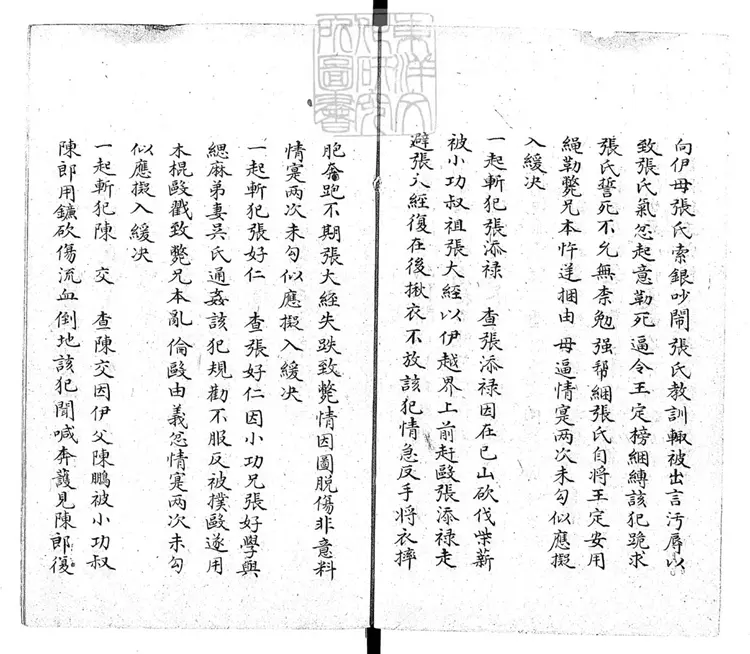 向伊母張氏索銀吵鬧張氏教訓輒被出言污辱以
致張氏氣忿起意勒死逼令王定榜綑縛該犯跪求
張氏誓死不允無柰勉强帮綑張氏自將王定安用
繩勒斃兄本忤逆捆由母逼情寔兩次未勾似應擬
入緩决
一起斬犯張添祿 查張添祿因在己山砍伐柴薪
被小功叔祖張大經以伊越界上前赶毆張添祿走
避張大經復在後揪衣不放該犯情急反手將衣摔
脫奔跑不期張大經失跌致斃情因圖脫傷非意料
情寔兩次未勾似應擬入緩决
一起斬犯張好仁 查張好仁因小功兄張好學與
緦麻弟妻吳氏通姦該犯規勸不服反被撲毆遂用
木棍毆戳致斃兄本亂倫毆由義忿情寔兩次未勾
似應擬入緩决
一起斬犯陳 交 查陳交因伊父陳鵬被小功叔
陳郎用鑛砍傷流血倒地該犯聞喊奔護見陳郎復
東洋文
化研究
所圖書